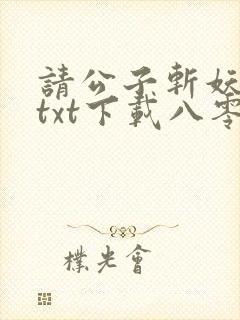 請公子斬妖
txt下載八零
樸光會